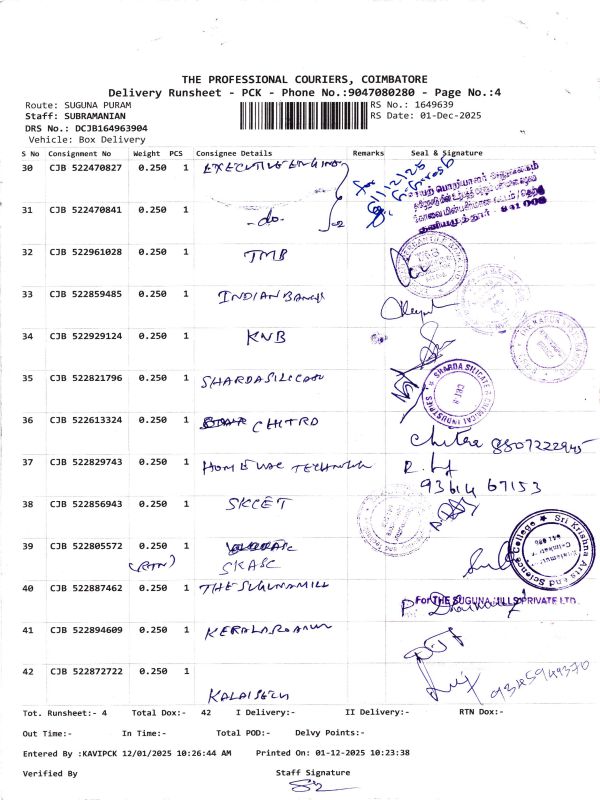 THE PROFESSIONAL COURIERS, COIMBATORE
Delivery Runsheet - PCK - Phone No.:9047080280 - Page No.:4
Route: SUGUNA PURAM
RS No.: 1649639
Staff: SUBRAMANIAN
RS Date: 01-Dec-2025
DRS No.: DCJB164963904
Vehicle: Box Delivery
S No Consignment No Weight PCS Consignee Details Remarks Seal & Signature
30 CJB 522470827 0.250 1 EXECUTIVE ENGINE
31 CJB 522470841 0.250 1 -do-
32 CJB 522961028 0.250 1 TMB
33 CJB 522859485 0.250 1 INDIAN BANK
34 CJB 522929124 0.250 1 KNB
35 CJB 522821796 0.250 1
SHARDA SILICATE & CHEMICAL INDUSTRIES
CBE-8
36 CJB 522613324 0.250 1 CHITRA
Chitra 8807222945
37 CJB 522829743 0.250 1
93614 67153
38 CJB 522856943 0.250 1 SKCET
39 CJB 522805572 0.250 1
(RTN) SKASC
Sri Krishna Arts and Science College
40 CJB 522887462 0.250 1 THE SUGUNA MILL
For THE SUGUNA MILLS PRIVATE LTD.
41 CJB 522894609 0.250 1
42 CJB 522872722 0.250 1
9345949370
Tot. Runsheet:- 4 Total Dox:- 42 I Delivery:- II Delivery:- RTN Dox:-
Out Time:- In Time:- Total POD:- Delvy Points:-
Entered By :KAVIPCK 12/01/2025 10:26:44 AM Printed On: 01-12-2025 10:23:38
Verified By Staff Signature